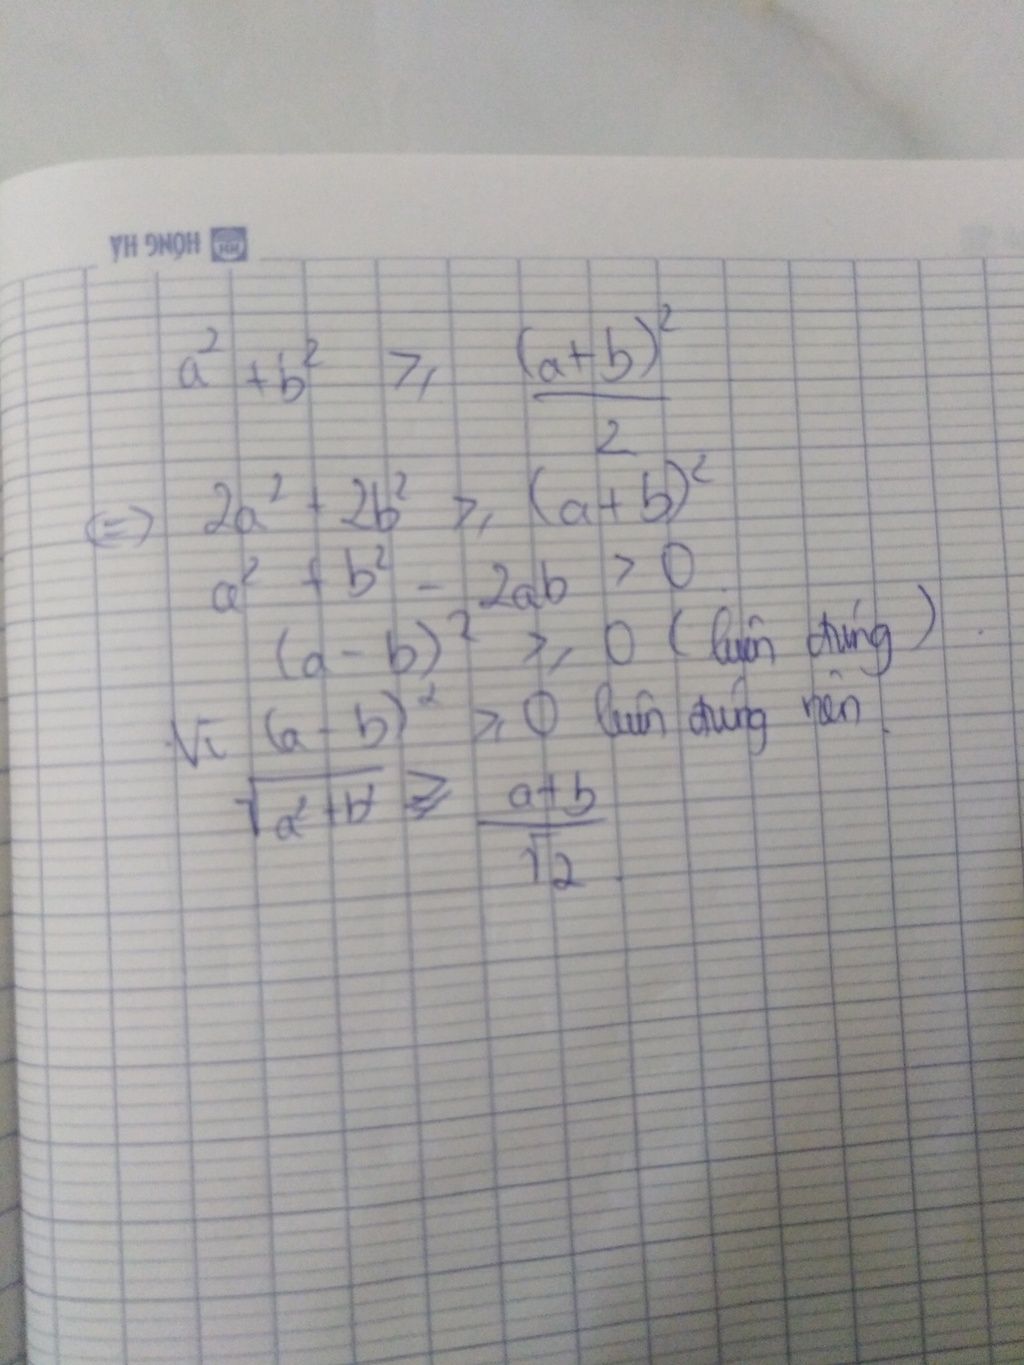 HỒNG HÀ HH
a² + b² ≥ (a+b)²/2
(=) 2a² + 2b² ≥ (a+b)²
a² + b² - 2ab > 0.
(a-b)² ≥ 0 (luôn đúng).
Vì (a-b)² ≥ 0 luôn đúng nên
√a²+b² ≥ a+b/√2.